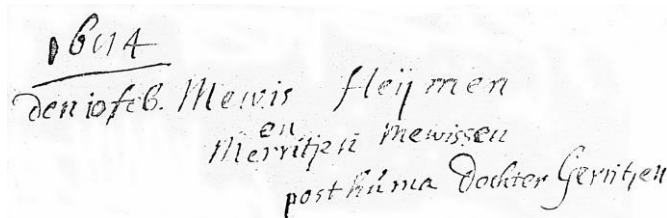 1614
den 10 feb. Mewis Heijmen
en
Merritjen Mewissen
posthúma dochter Gerritjen